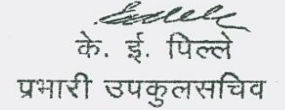 के. ई. पिल्ले
प्रभारी उपकुलसचिव